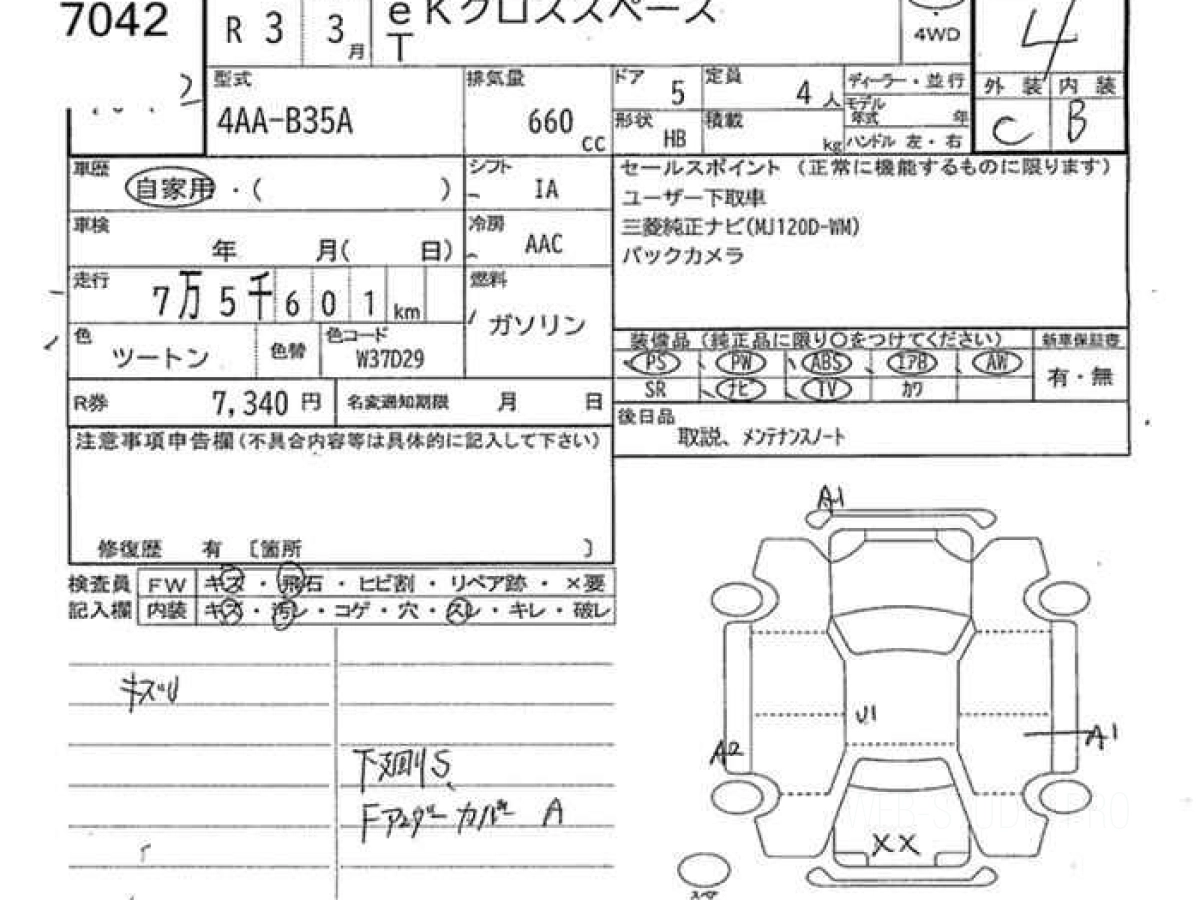 7042
R 3 3月
eKクロススペース
T
4WD
4
外装 内装
C B
型式
4AA-B35A
排気量
660 cc
ドア 5
定員 4 人
形状 HB
積載 kg
ディーラー・並行
モデル年式 年
ハンドル 左・右
車歴
自家用・( )
シフト
IA
車検
年 月( 日)
冷房
AAC
走行
7万5千601km
燃料
ガソリン
色
ツートン
色替
色コード
W37D29
R券 7,340円
名変通知期限 月 日
セールスポイント (正常に機能するものに限ります)
ユーザー下取車
三菱純正ナビ(MJ120D-WM)
バックカメラ
装備品(純正品に限り○をつけてください)
PS PW ABS エアB AW
SR ナビ TV カワ
新車保証書
有・無
後日品
取説、メンテナンスノート
注意事項申告欄(不具合内容等は具体的に記入して下さい)
修復歴 有 〔箇所 〕
検査員記入欄
FW キズ・飛石・ヒビ割・リペア跡・×要
内装 キズ・汚レ・コゲ・穴・スレ・キレ・破レ
キズU
下廻りS、
Fアンダーカバー A
A1
U1
A2
A1
XX
スペア